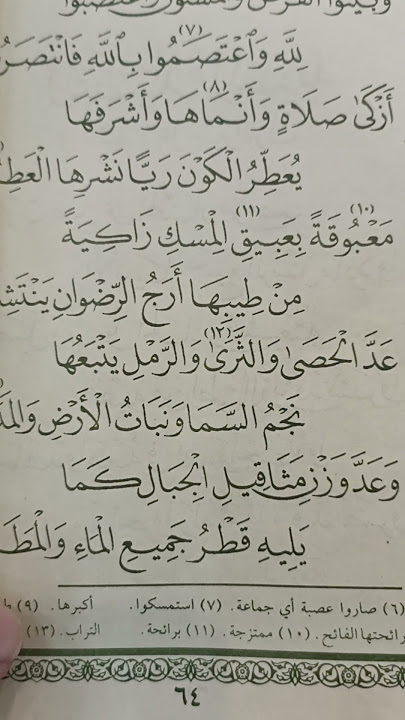 لِلَّهِ وَاعْتَصَمُوا بِاللَّهِ فَانْتَصَرُ
(٧)
أَزْكَى صَلَاةٍ وَأَنْمَاهَا وَأَشْرَفَهَا
(٨)
يُعَطِّرُ الْكَوْنَ رَيًّا نَشْرِهَا الْعَطِ
مَعْبُوقَةً بِعَبِيقِ الْمِسْكِ زَاكِيَةً
(١٠) (١١)
مِنْ طِيبِهَا أَرَجُ الرِّضْوَانِ يَنْتَشِ
عَدَّ الْحَصَى وَالثَّرَى وَالرَّمْلِ يَتْبَعُهَا
(١٢)
نَجْمُ السَّمَا وَنَبَاتُ الْأَرْضِ وَالْمَ
وَعَدَّ وَزْنِ مَثَاقِيلِ الْجِبَالِ كَمَا
يَلِيهِ قَطْرُ جَمِيعِ الْمَاءِ وَالْمَطَ
(٦) صاروا عصبة أي جماعة. (٧) استمسكوا. أكبرها. (٩)
رائحتها الفائح. (١٠) ممتزجة. (١١) برائحة. التراب. (١٣)
٦٤